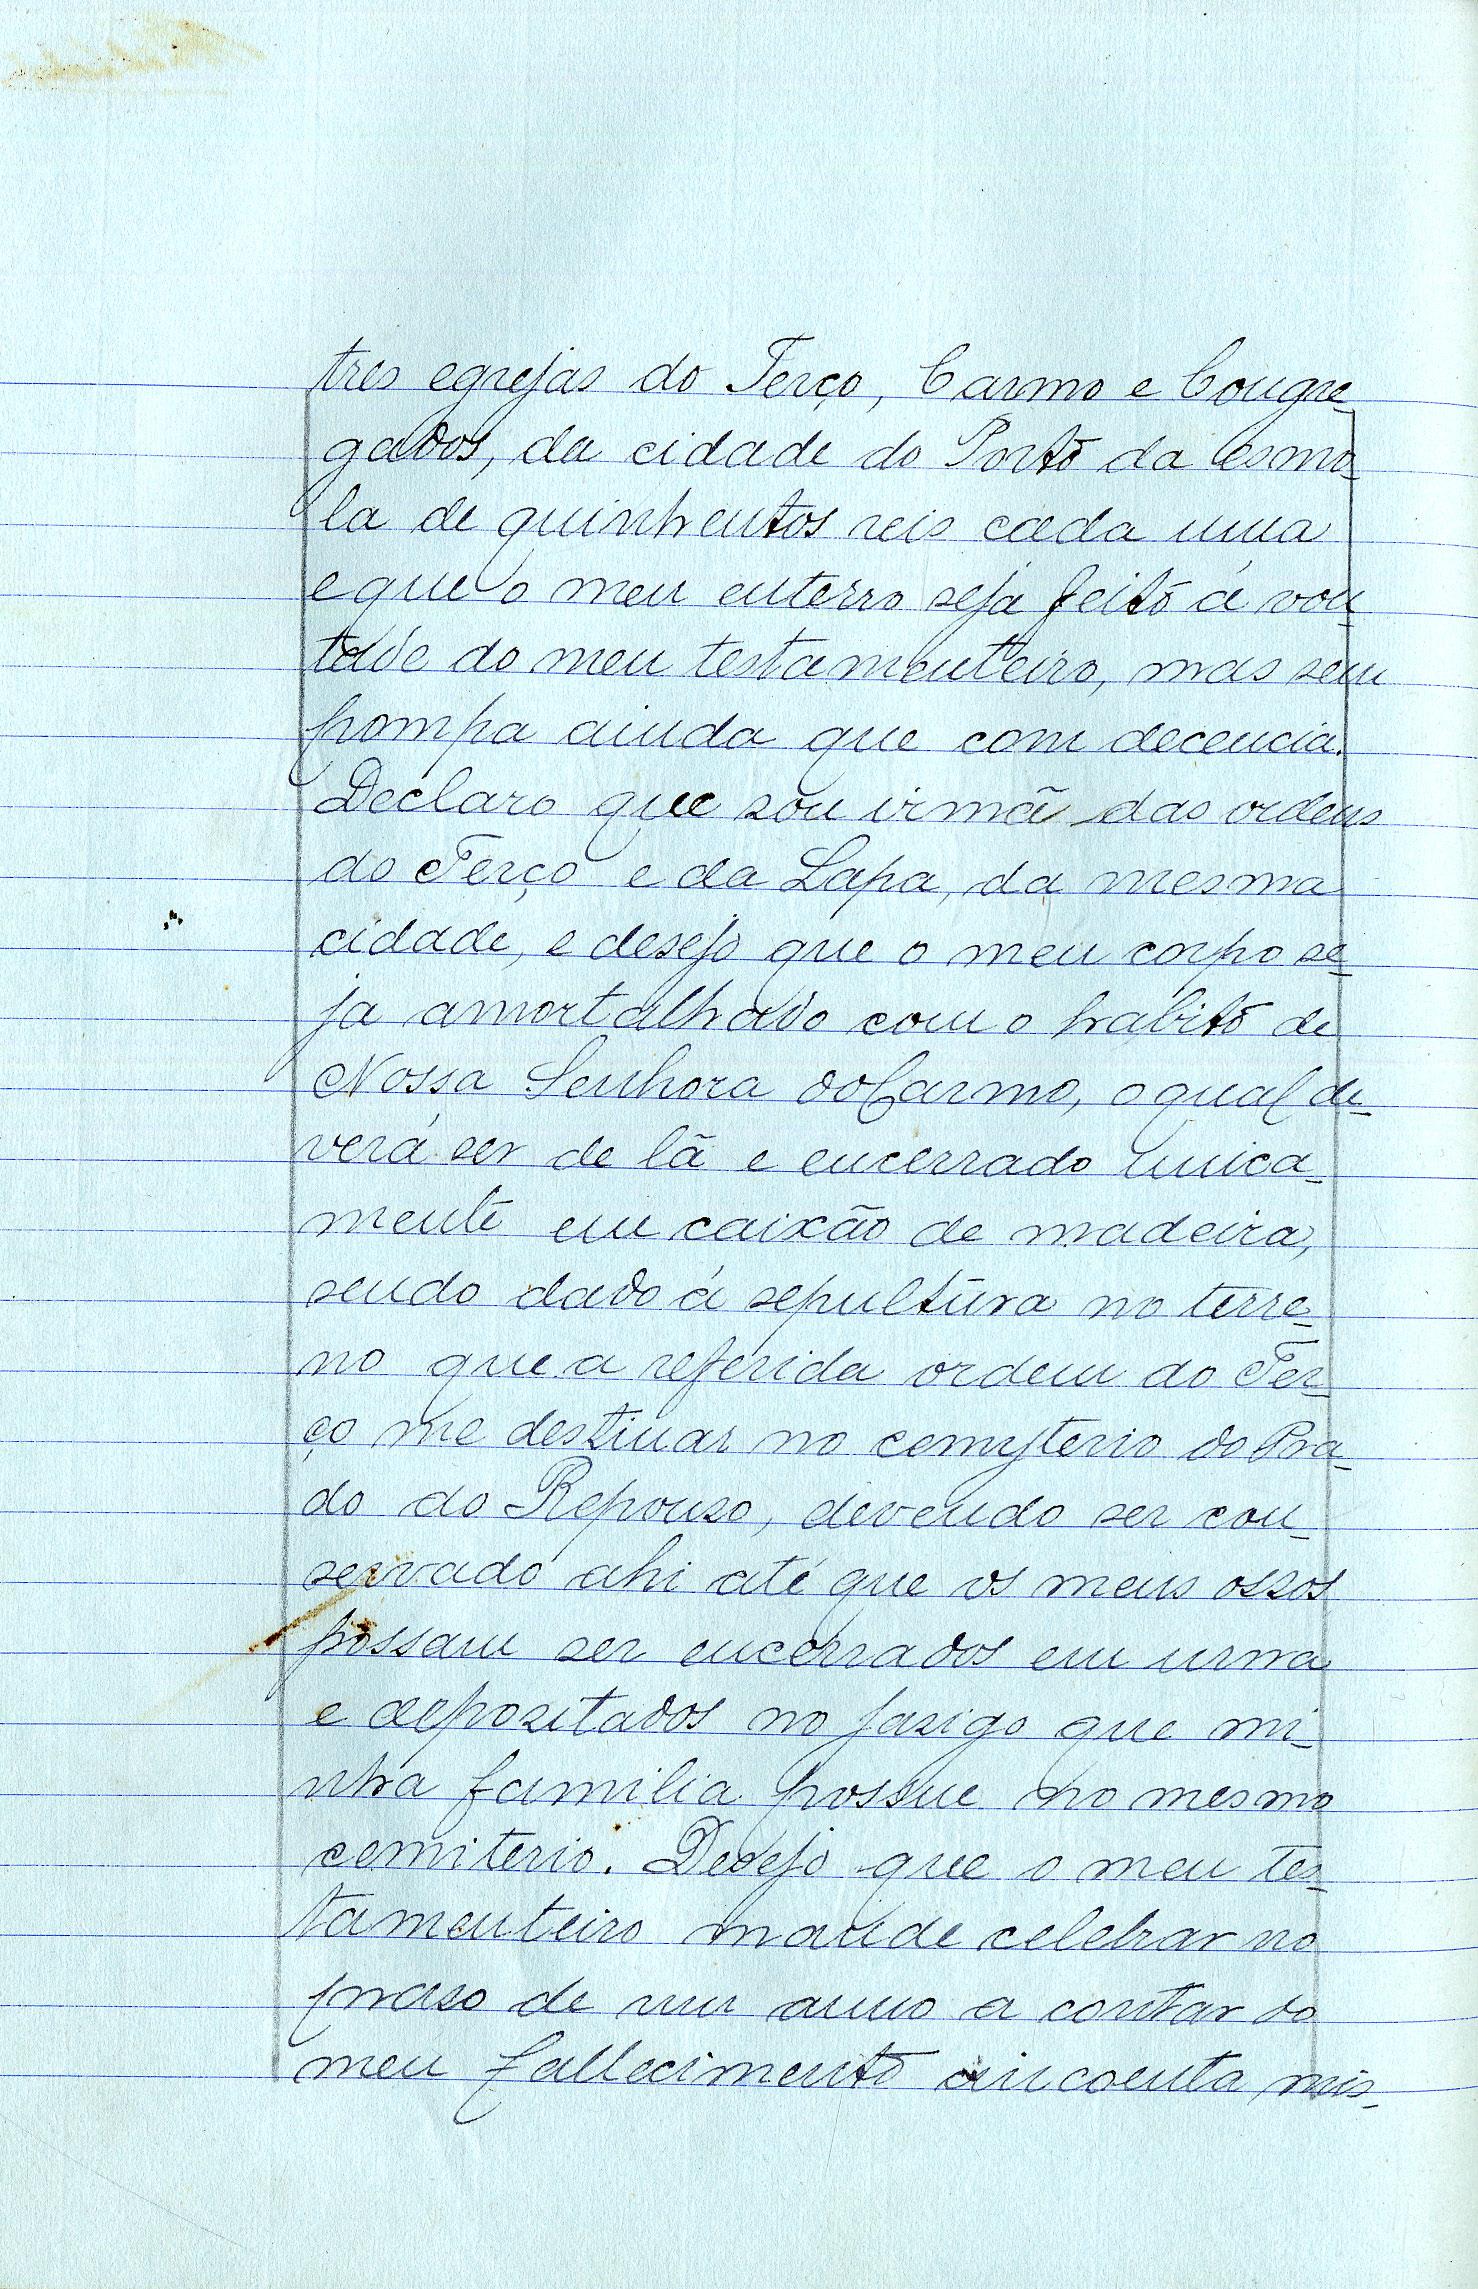 tres egrejas do Terço, Carmo e Congre-
gados, da cidade do Porto da esmo-
la de quinhentos reis cada uma
e que o meu enterro seja feito á von-
tade do meu testamenteiro, mas sem
pompa ainda que com decencia.
Declaro que sou irmã das ordens
do Terço e da Lapa, da mesma
cidade, e desejo que o meu corpo se-
ja amortalhado com o habito de
Nossa Senhora do Carmo, o qual de-
verá ser de lã e encerrado unica-
mente em caixão de madeira,
sendo dado á sepultura no terre-
no que a referida ordem do Ter-
ço me destinar no cemyterio do Pra-
do do Repouso, devendo ser con-
servado ahi até que os meus ossos
possam ser encerrados em urna
e depositados no jasigo que mi-
nha familia possue no mesmo
cemiterio. Desejo que o meu tes-
tamenteiro mande celebrar no
praso de um anno a contar do
meu fallecimento cincoenta mis-